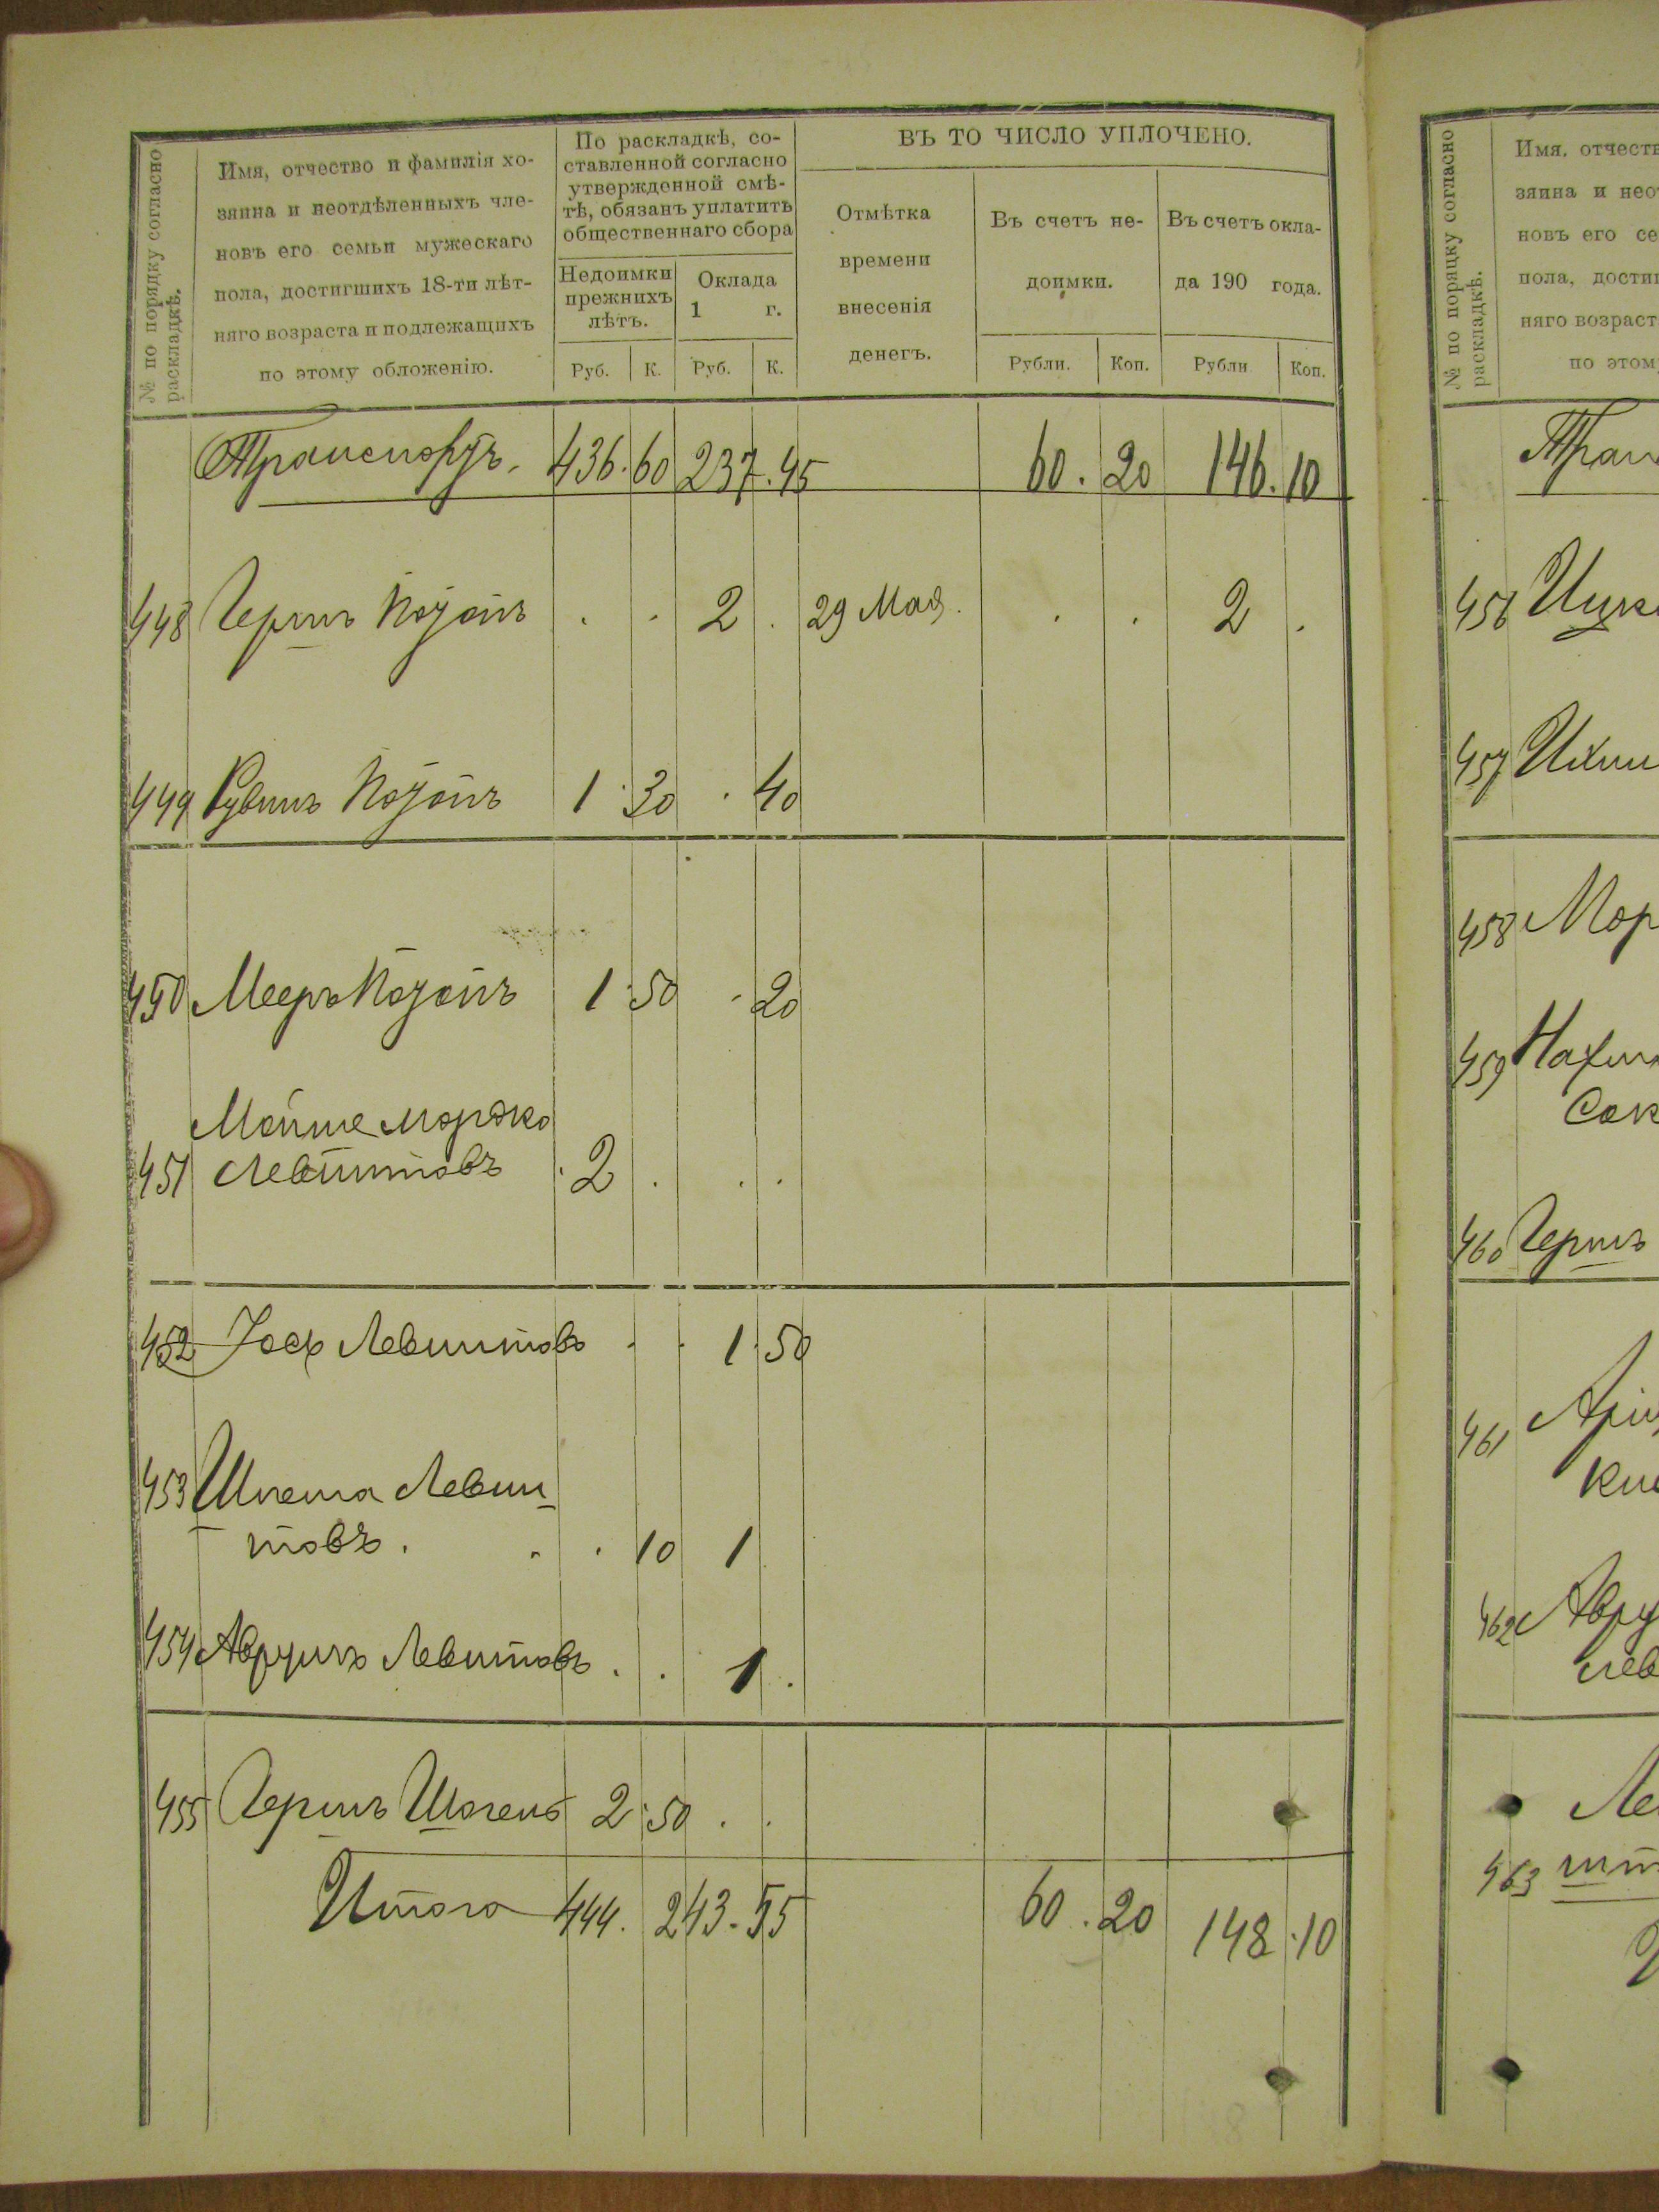 № по порядку согласно
раскладкѣ.
Имя, отчество и фамилія хо-
зяина и неотдѣленныхъ чле-
новъ его семьи мужескаго
пола, достигшихъ 18-ти лѣт-
няго возраста и подлежащихъ
по этому обложенію.
По раскладкѣ, со-
ставленной согласно
утвержденной смѣ-
тѣ, обязанъ уплатить
общественнаго сбора
Недоимки
прежнихъ
лѣтъ.
Оклада
1 г.
Руб. К. Руб. К.
ВЪ ТО ЧИСЛО УПЛОЧЕНО.
Отмѣтка
времени
внесенія
денегъ.
Въ счетъ не-
доимки.
Рубли. Коп.
Въ счетъ окла-
да 190 года.
Рубли Коп.
Транспортъ. 436.60 237.45 60.20 146.10
448 Гершъ . . 2 . 29 Мая. . . 2 .
449 Рувинъ 1.30 . 40
450 Мееръ 1.50 . 20
Мойше Мордко
451 Левштовъ . 2 . . .
452 Левинтовъ . . 1.50
453 Левин-
товъ . . . 10 1
454 Аврумъ Левинтовъ . . 1 .
455 Гершъ 2.50 . .
Итого 444. 243.55 60.20 148.10
№ по порядку согласно
раскладкѣ.
Имя. отчеств
зяина и нео
новъ его се
пола, дости
няго возраст
по этом
Тран
456
457
458 Мор
459
460 Гершъ
461
462 Авру
Лев
463